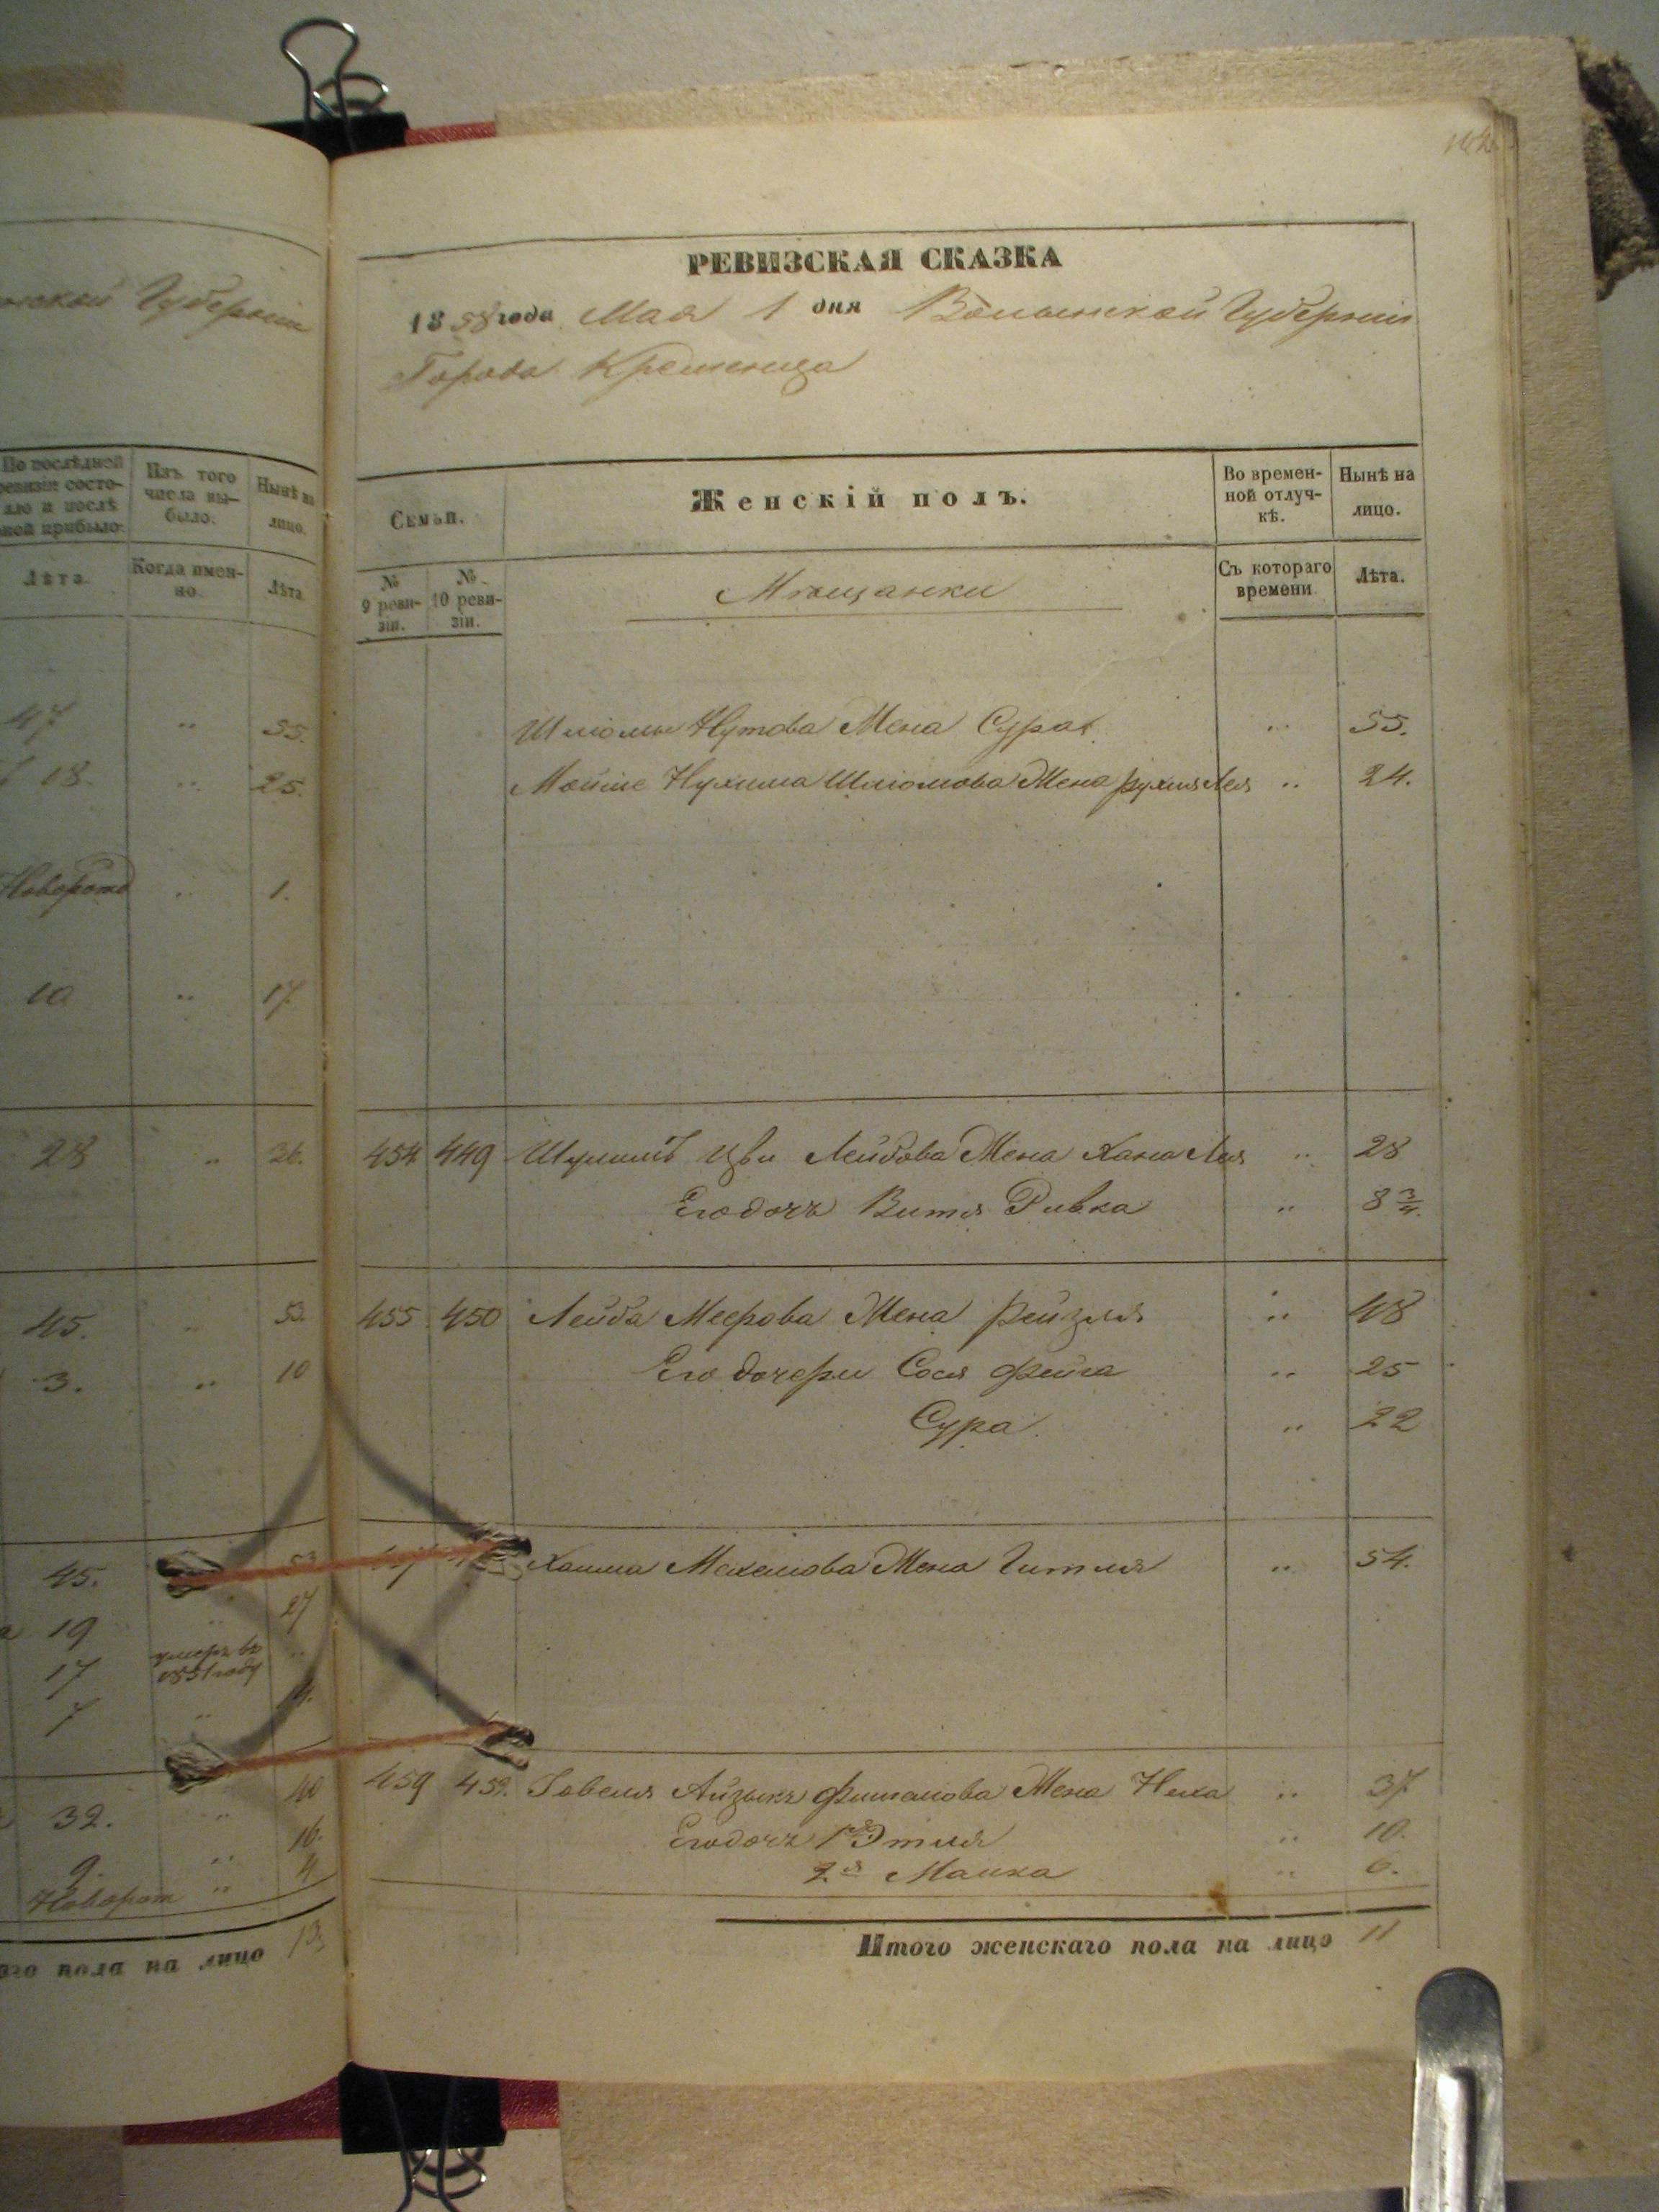 162.
РЕВИЗСКАЯ СКАЗКА
1858 года Мая 1 дня Волынской Губерніи
Города Кременца
ской Губерніи
По послѣдней
ревизіи состо-
яло и послѣ
ной прибыло.
Изъ того
числа вы-
было.
Нынѣ на
лицо.
Лѣта.
Когда имен-
но.
Лѣта
47 " 55.
18. " 25.
Новорожд " 1.
10 " 17.
28 " 36.
45. " 53.
3. " 10
45. 53
19 " 27
17 умеръ въ 1851 году "
7 "
32. " 40
9. " 16.
Новорож " 4
го пола на лицо 13
Семьи.
Женскій полъ.
Во времен-
ной отлуч-
кѣ.
Нынѣ на
лицо.
№
9 реви-
зіи.
№
10 реви-
зіи.
Мѣщанки
Съ котораго
времени
Лѣта.
Шлiомы Нутова Жена Сура " 55.
Мойше Нухима Шлiомова Жена Рухля Лея " 24.
454 449 Цви Лейбова Жена Хана Лея " 28
Его дочь Витя Ривка " 8 3/4.
455 450 Лейба Меерова Жена Рейзля " 48
Его дочери Сося Фейга " 25
Сура " 22
Хаима Мехелова Жена Гитля " 54.
459 452. Іовеля Айзыкъ Фишелова Жена Неха " 37
Его дочь 1я Этля " 10.
2я Малка " 6.
Итого женскаго пола на лицо 11